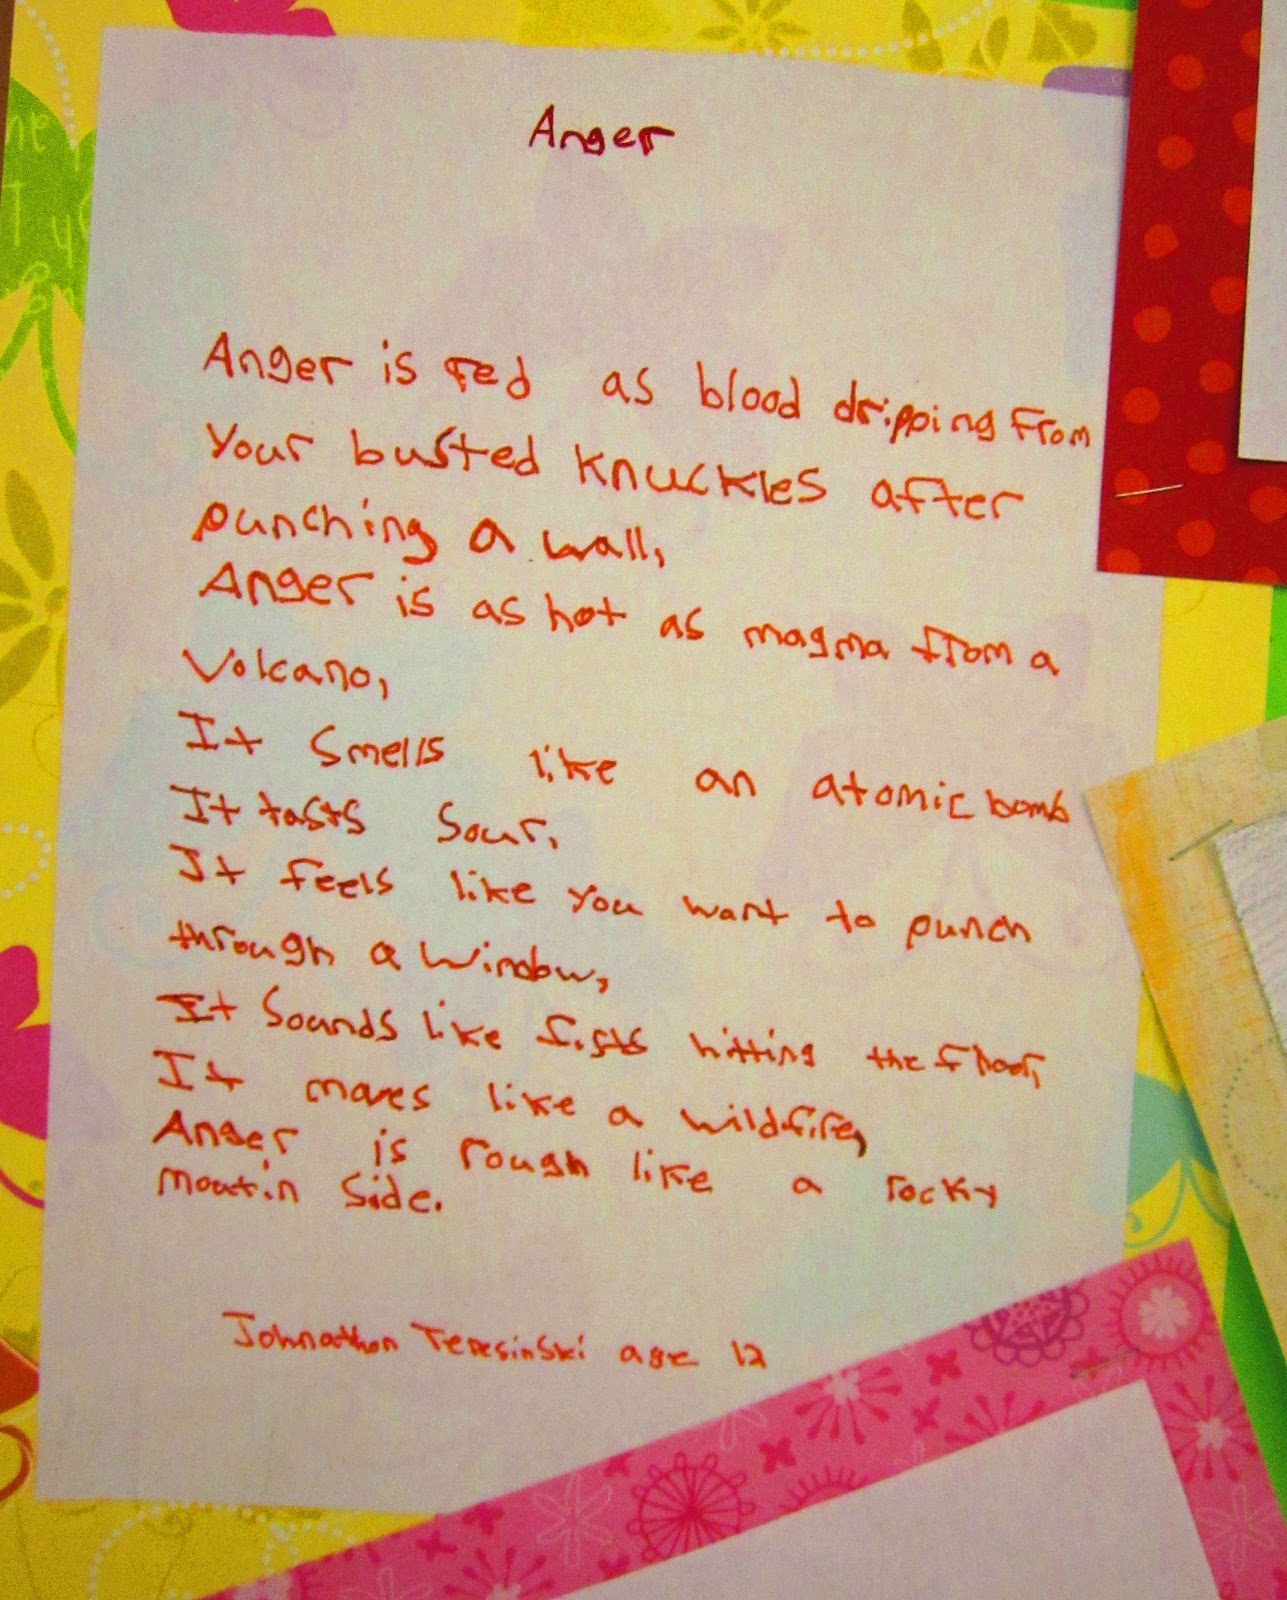 Anger
Anger is red as blood dripping from
your busted knuckles after
punching a wall,
Anger is as hot as magma from a
Volcano,
It smells like an atomic bomb
It tasts sour,
It feels like you want to punch
through a window,
It sounds like fists hitting the floor,
It moves like a wildfire,
Anger is rough like a rocky
moutin side.
Johnathon Teresinski age 12